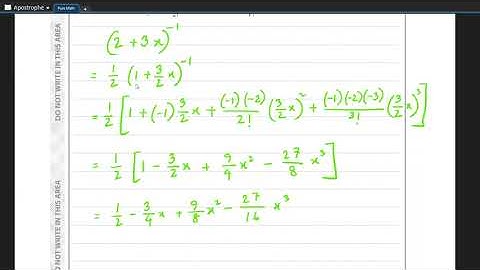 Apostrophe
Pure Math
DO NOT WRITE IN THIS AREA
DO NOT WRITE IN THIS AREA
(2 + 3x)^{-1}
= \frac{1}{2} (1 + \frac{3}{2}x)^{-1}
= \frac{1}{2} [1 + (-1) \frac{3}{2}x + \frac{(-1)(-2)}{2!} (\frac{3}{2}x)^2 + \frac{(-1)(-2)(-3)}{3!} (\frac{3}{2}x)^3]
= \frac{1}{2} [1 - \frac{3}{2}x + \frac{9}{4}x^2 - \frac{27}{8}x^3]
= \frac{1}{2} - \frac{3}{4}x + \frac{9}{8}x^2 - \frac{27}{16}x^3